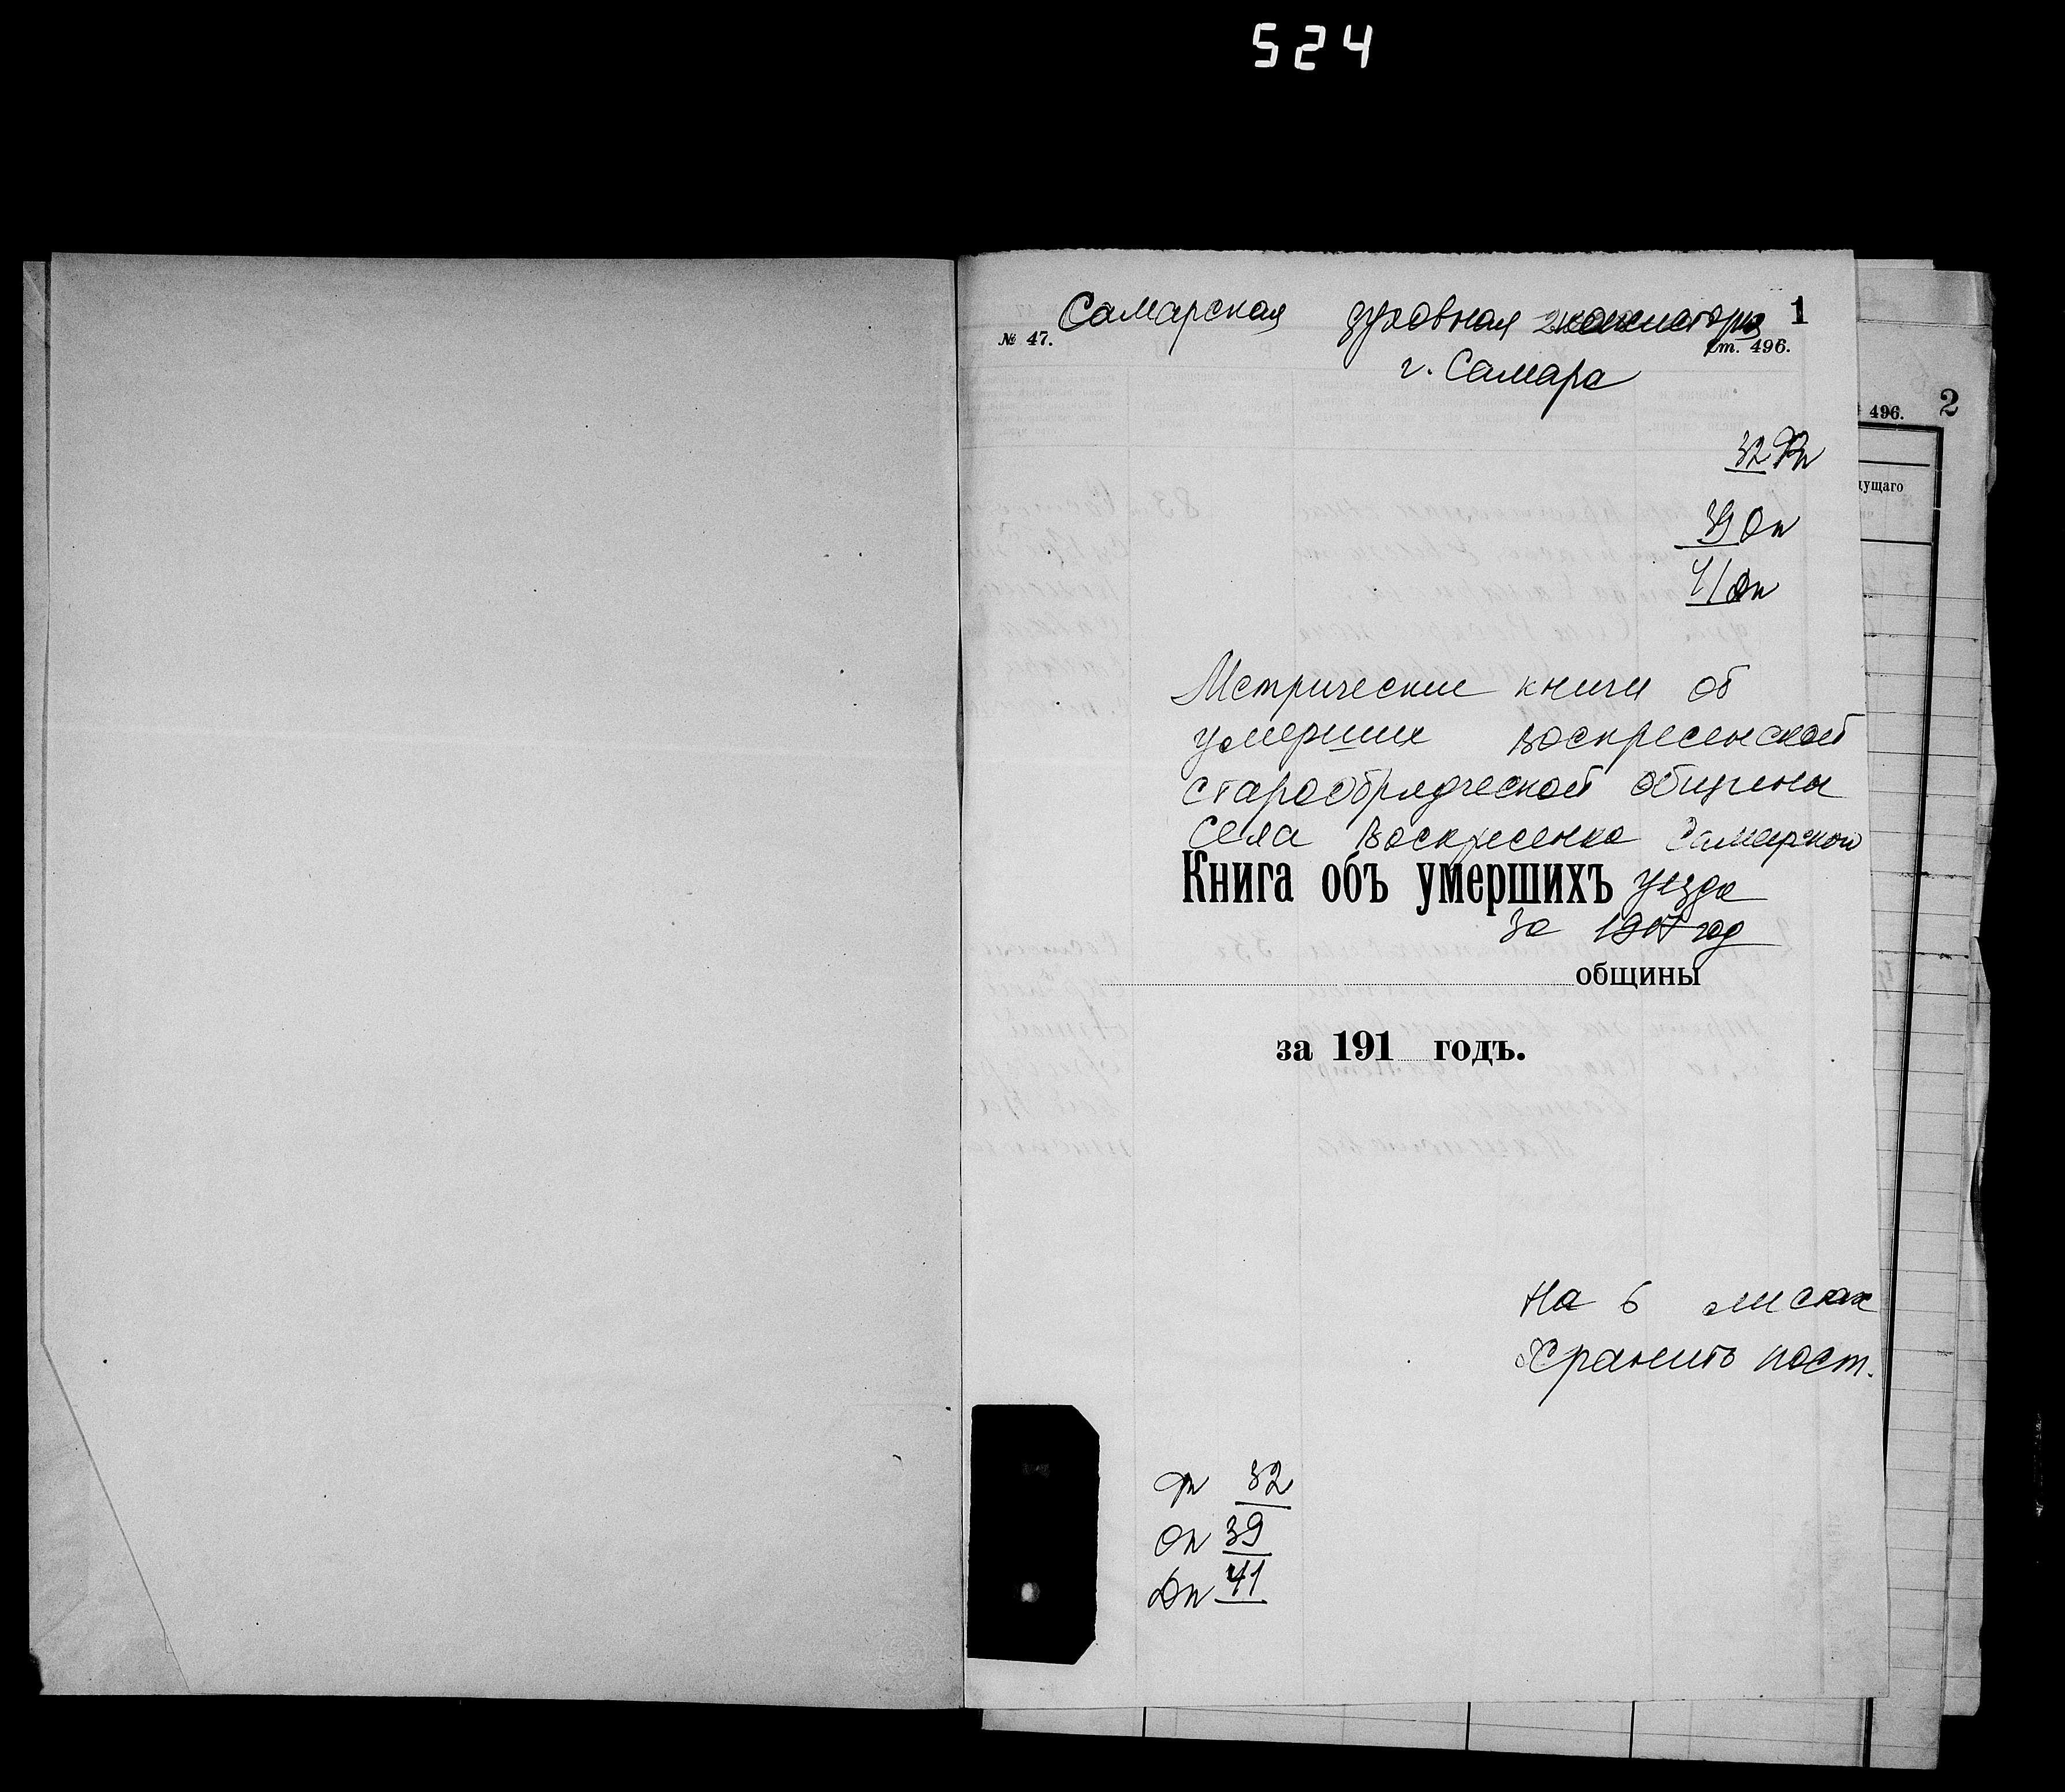 524
Самарская духовная консистория 1
№ 47. Ст. 496.
г. Самара
496. 2
32 Фп
дущаго
39 Оп
41 Дп
Метрические книги об
умерших Воскресенской
старообрядческой общины
села Воскресенка Самарской
Книга объ умершихъ уезда
за год
общины
за 191 годъ.
На 6 листах
Хранить пост.
Фп 32
Оп 39
Дп 41